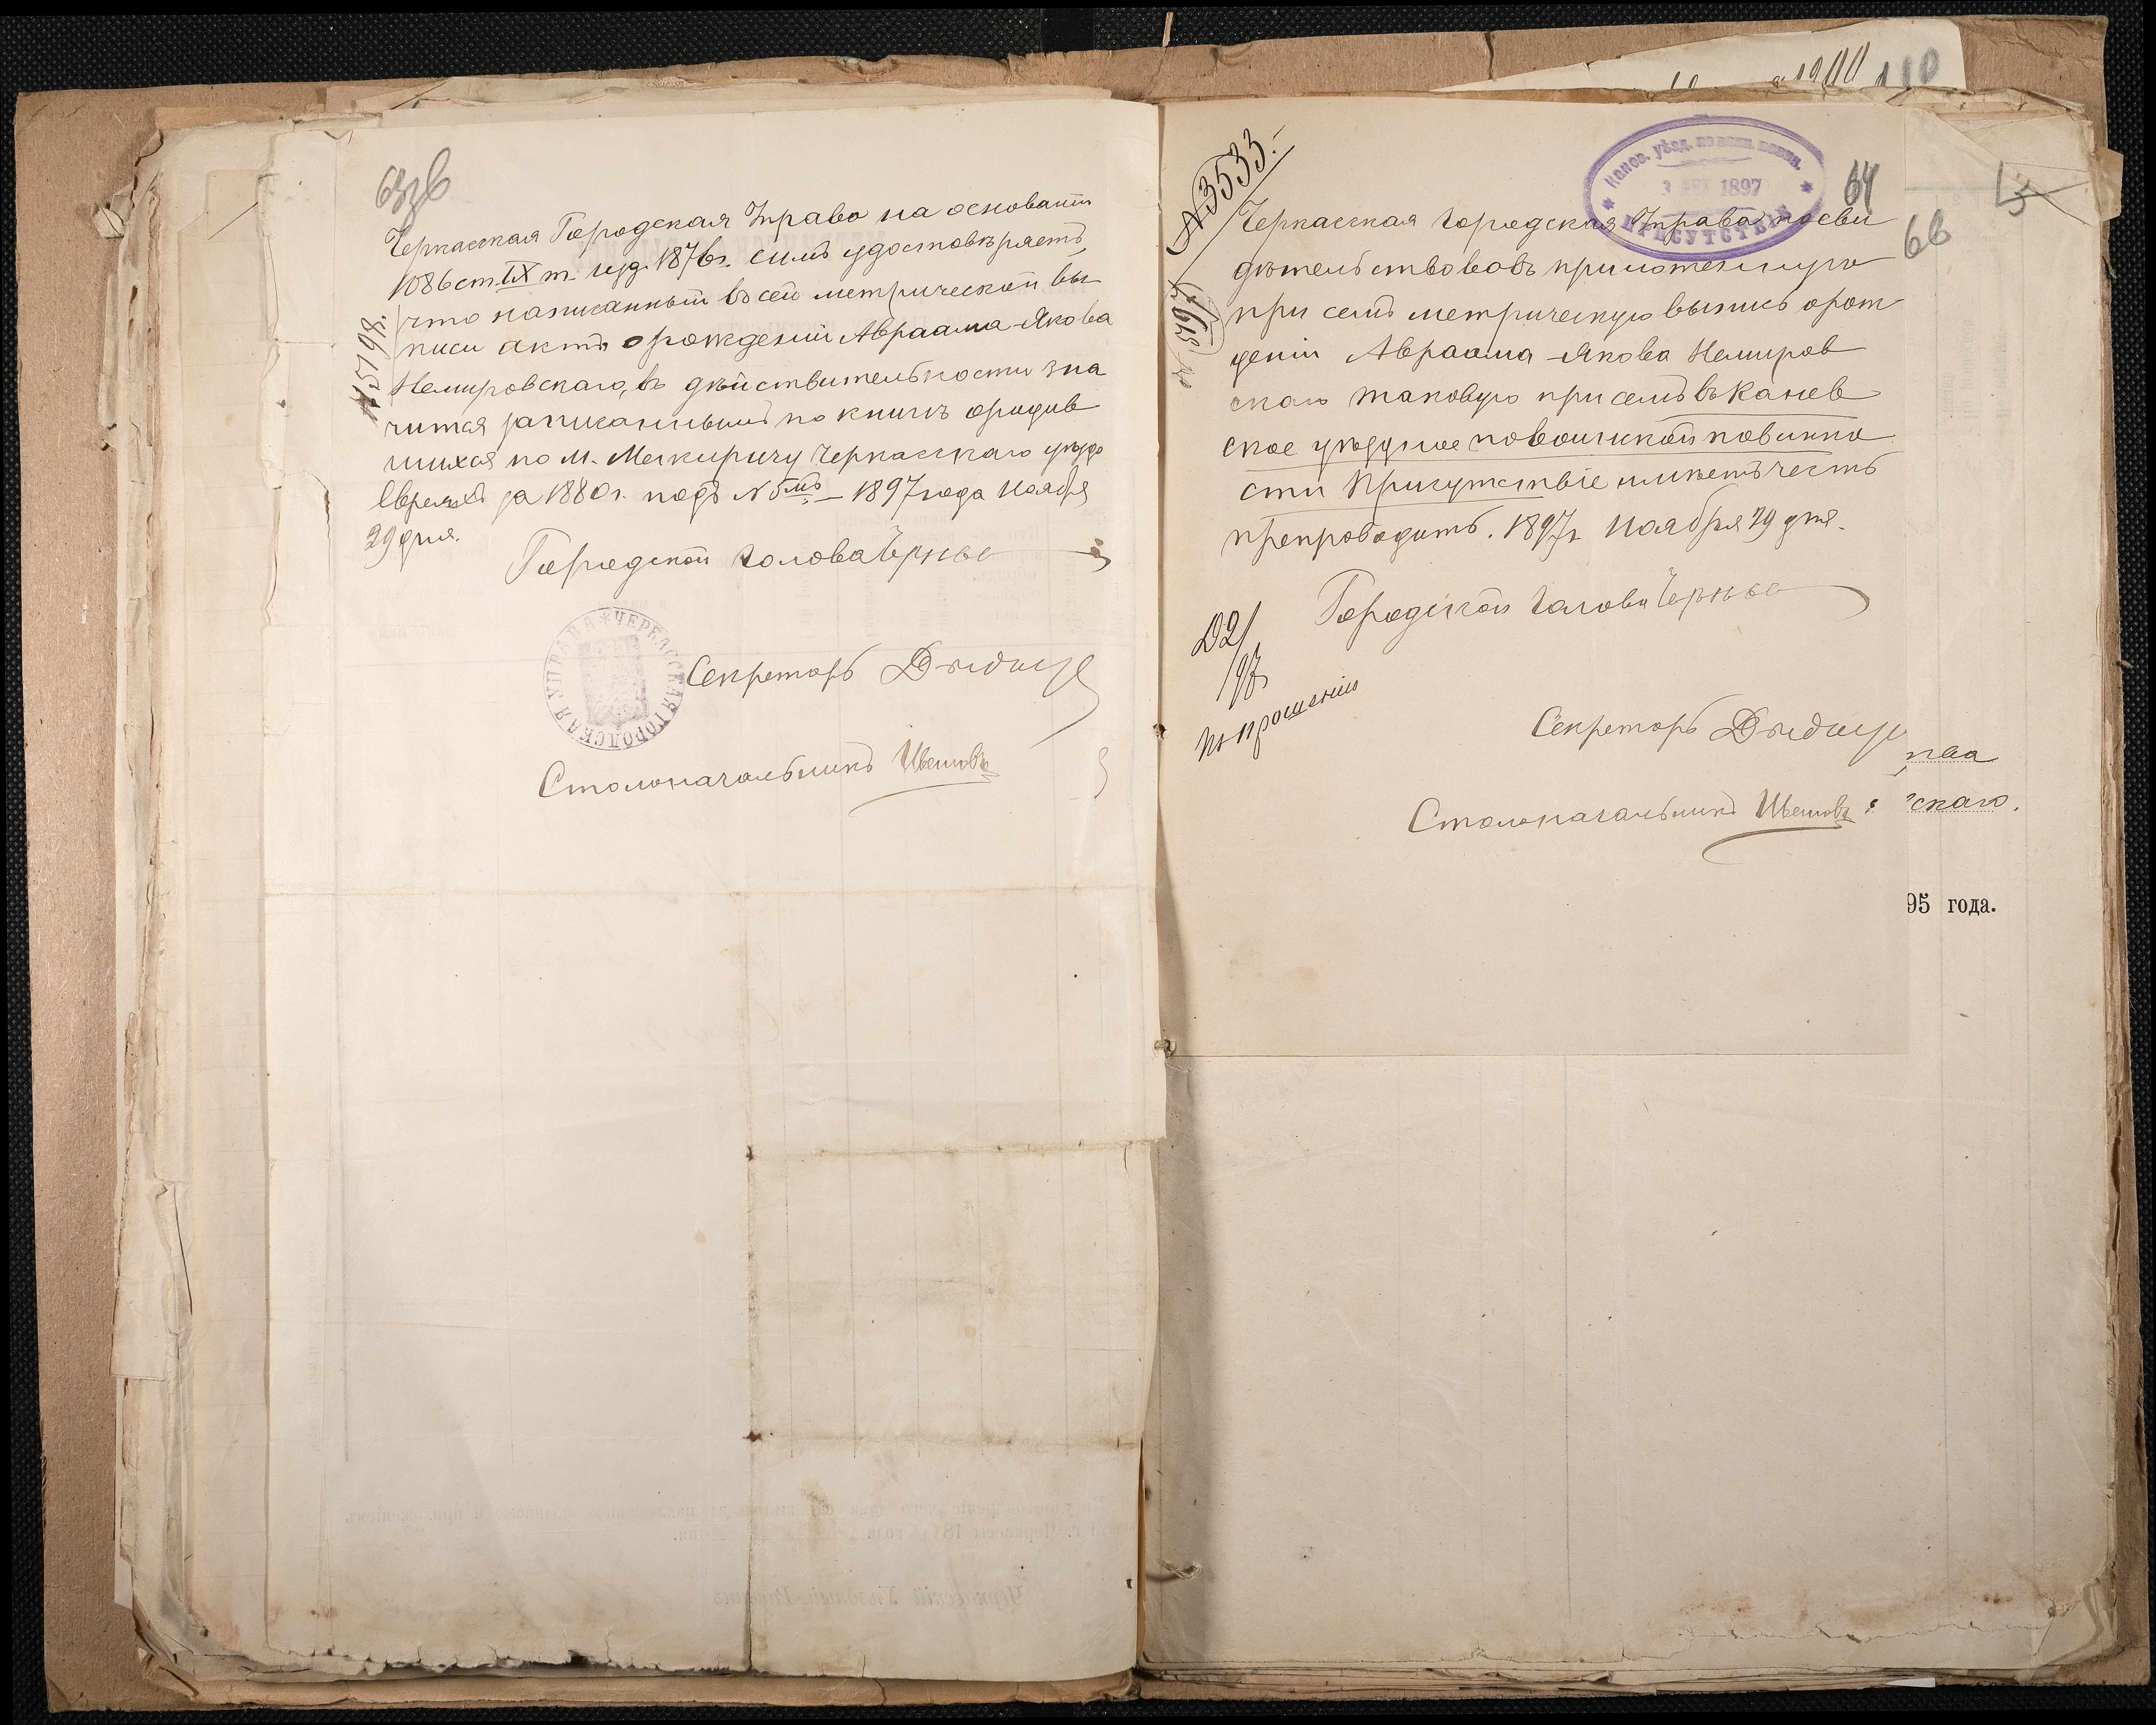 63 об
Черкасская Городская Управа на основаніи
1086 ст. IX т. изд. 1876 г. симъ удостовѣряетъ,
что написанный въ сей метрической вы
писи актъ о рожденіи Авраама-Якова
Немировскаго, въ дѣйствительности зна
чится записаннымъ по книгѣ о родив
шихся по м. Межиричу Черкасскаго уѣзда
Евреяхъ за 1880 г. подъ N 5мъ – 1897 года Ноября
29 дня.
N 5198.
Городской Голова
ЧЕРКАССКАЯ ГОРОДСКАЯ УПРАВА
Секретарь
Столоначальникъ
1900 110
N 3533.
Канев. уѣзд. по воин. повин.
3 1897
ПРИСУТСТВІЕ
64
66
5
Черкасская Городская Управа посви
дѣтельствовавъ приложенную
при семъ метрическую выпись о рож
деніи Авраама-Якова Немиров
скаго таковую при семъ въ Канев
ское уѣздное по воинской повинно
сти Присутствіе имѣетъ честь
препроводить. 1897 г. Ноября 29 дня.
Городской Голова
Д 2/
97
по прошенію
Секретарь
Столоначальникъ
скаго.
95 года.